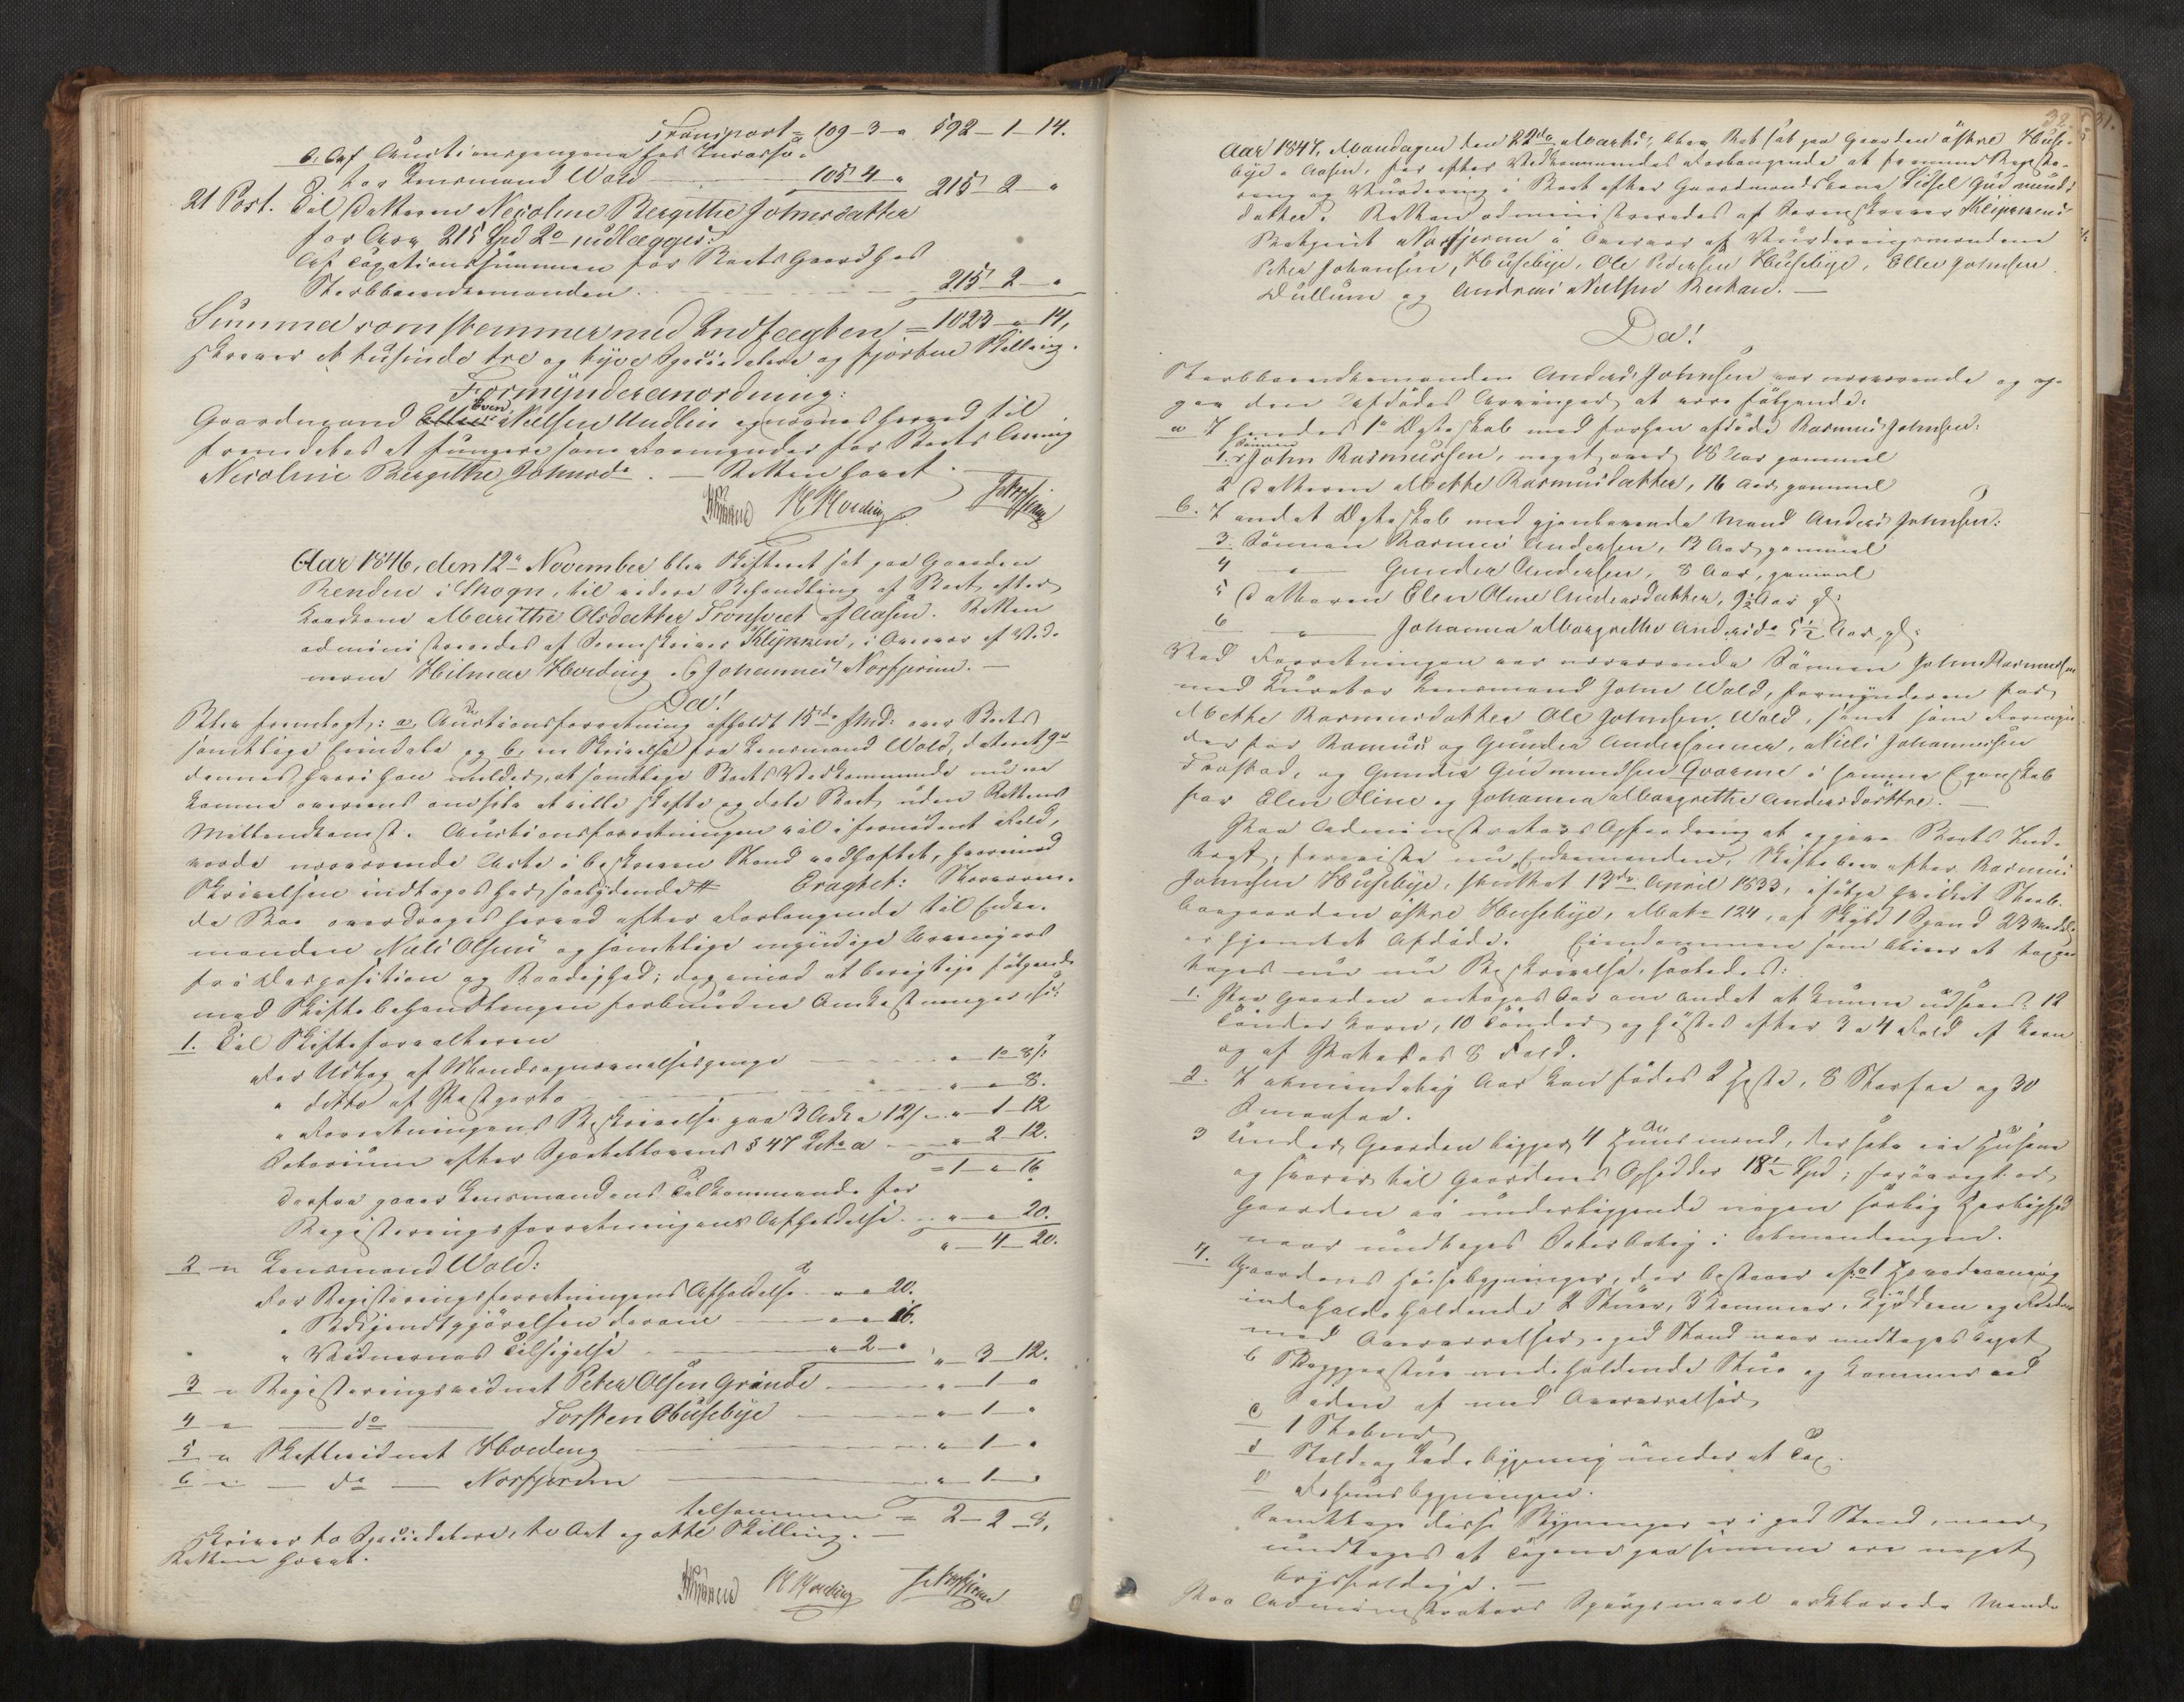 Transport = 109-3-" 592-1-14.
b, af Auctionspengene hos Incasso:
hos Lensmand Wold 105 4 " 215 2 "
21 Post. Til Datteren Nicoline Bergithe Johnsdatter
for Arv 215 Spd 2 udlægges:
Af Taxationssummen for Boets Gaard hos
Sterbboenkemanden 215-2-"
Summa som stemmer med Indtægten = 1023 " 14,
skriver et tusinde tre og tyve Speciedaler og fjorten Skilling.
Formynderanordning:
Gaardmand Even Nielsen Undlien ernævnes herved til
fremdeles at fungere som Formynder for Boets Arving
Nicoline Bergithe Johnsd. — Retten hævet.
Klykken H Hording J Norsfjerun
Aar 1846, den 12 November blev Skifteret sat paa Gaarden
Renden i Skogn, til videre Behandling af Boet efter
Konen Marithe Olsdatter Tronsvet af Aasen. Retten
administreredes af Sorenskriver Klykken, i Overvær af Vid-
nerne Hilmar Hording og Johannes Norsfjerun. —
Da!
Blev fremlagt: a, Auctionsforretning afholdt 15de f.Md: over Boets
samtlige Eiendele og b, en Skrivelse fra Lensmand Wold, dateret 9de
dennes hvori han melder, at samtlige Boets Vedkommende nu ere
komne overeens om selv at ville skifte og dele Boet uden Rettens
Mellemkomst. Auctionsforretningen vil i fornødent Fald,
vorde nærværende Acte i beskreven Stand vedhæftet, hvorimod
Skrivelsen indtages her saalydende # Eragtet: Nærværen-
de Boe overdrages herved efter Forlangende til Enke-
manden Niels Olsen og samtlige myndige Arvinger
fri Disposition og Raadighed; dog imod at berigtige følgende
med Skiftebehandlingen forbundne Omkostninger, see:
1. Til Skifteforvalteren
For Udtog af Mandsopnævnelsespenge " 1 8 s
" ditto af Postporto " " 8.
" Forretningens Beskrivelse paa 3 Ark a 12 s " 1-12
Salarium efter Sportellovens § 47 Litr a " 2-12.
= 1 " 16
Derfra gaaer Lensmandens Tilkommende for
Registeringsforretningens Afholdelse " " 20.
" 4-20.
2 " Lensmand Wold:
For Registeringsforretningens Afholdelse " " 20.
" Bekjendtgjørelsen derom " " 16.
" Vidnernes Tilsigelse " 2 " " 3-12.
3 " Registeringsvidnet Peter Olsen Grande " 1 "
4 " do Torsten Husebye " 1 "
5 " Skiftevidnet Hording " 1 "
6 " do Norsfjerun " 1 "
tilsammen = 2-2-8,
skriver to Speciedaler, to Ort og otte Skilling. —
Retten hævet.
Klykken H Hording J Norsfjerun
32.
31.
Aar 1847, Mandagen den 22de Marts, blev Ret sat paa Gaarden østre Huse-
bye i Aasen, for efter Vedkommendes Forlangende at fremme Registe-
rering og Vurdering i Boet efter Gaardmandskone Sidsel Gudmunds-
datter. Retten administreredes af Sorenskriver Klykkens
Norsfjerun i Overvær af Vurderingsmændene
Peter Johansen, Husebye, Ole Pedersen Husebye, Ellev Johnsen
Dullum og Andreas Nielsen Rechan. —
Da!
Sterbboenkemanden Anders Johnsen var nærværende og op-
gav den Afdødes Arvinger, at være følgende:
a I hendes 1ste Egteskab med forhen afdøde Rasmus Johnsen:
1. Sønnen John Rasmussen, noget over 18 Aar gammel
2 Datteren Mette Rasmusdatter, 16 Aar gammel
b. I andet Egteskab med gjenlevende Mand Anders Johnsen:
3. Sønnen Rasmus Andersen, 12 Aar gammel
4 " Gunder Andersen, 8 Aar, gammel
5 Datteren Elen Oline Andersdatter, 9½ Aar gl:
6 " Johanna Margrethe Andersda 5½ Aar gl:
Ved Forretningen var nærværende Sønnen John Rasmussen
med Curator Lensmand John Wold, Formynderen for
Mette Rasmusdatter Ole Johnsen Wold, samt som Formyn-
der for Rasmus og Gunder Anderssønner, Niels Johannessen
Frostad, og Gunder Gudmundsen Hvarme i samme Egenskab
for Elen Oline og Johanna Margrethe Andersdøttre. —
Paa Administrators Opfordring at opgive Boets Ind-
tægt, foreviste nu Enkemanden, Skiftebrev efter Rasmus
Johnsen Husebye, sluttet 13de April 1833, ifølge hvilket Sterb-
boegaarden østre Husebye, Matr 124, af Skyld 1 Spand 23 Mrkl
er hjemlet Afdøde. Eiendommen som bliver at taxere
tages nu under Beskrivelse, saaledes:
1. Paa Gaarden antages Aar om andet at kunne udsaaes: 12
Tønder Korn, 10 Tønder og høstes efter 3 a 4 Fold af Korn
og af Poteter 8 Fold.
2. I almindelig Aar kan fødes 2 Heste, 8 Storfæ og 30
Smaafæ.
3 Under Gaarden ligger 4 Huusmænd, der selv eie Husene
og svarer til Gaardens Opsidder 18½ Spd; forøvrigt er
Gaarden ei underliggende nogen særlig Herlighed
naar undtages Sæterbolig i Almendingen.
4. Gaardens Huusebygninger, der bestaaer af: a 1 Hovedvaaning
indeholdende 2 Stuer, 3 Kammer, Kjøkken og
med Overværelser, i god Stand naar undtages Taget
b Bryggestue indeholdende Stue og Kammer ved
Siden af med Overværelser
c 1 Stabur
d Stald- og Ladebygning under et Tag.
e Fæhuusbygningen.
Samtlige disse Bygninger er i god Stand, naar
undtages at Tagene paa samme ere noget
brøstfældige. —
Paa Administrators Spørgsmaal erklærede Mænde